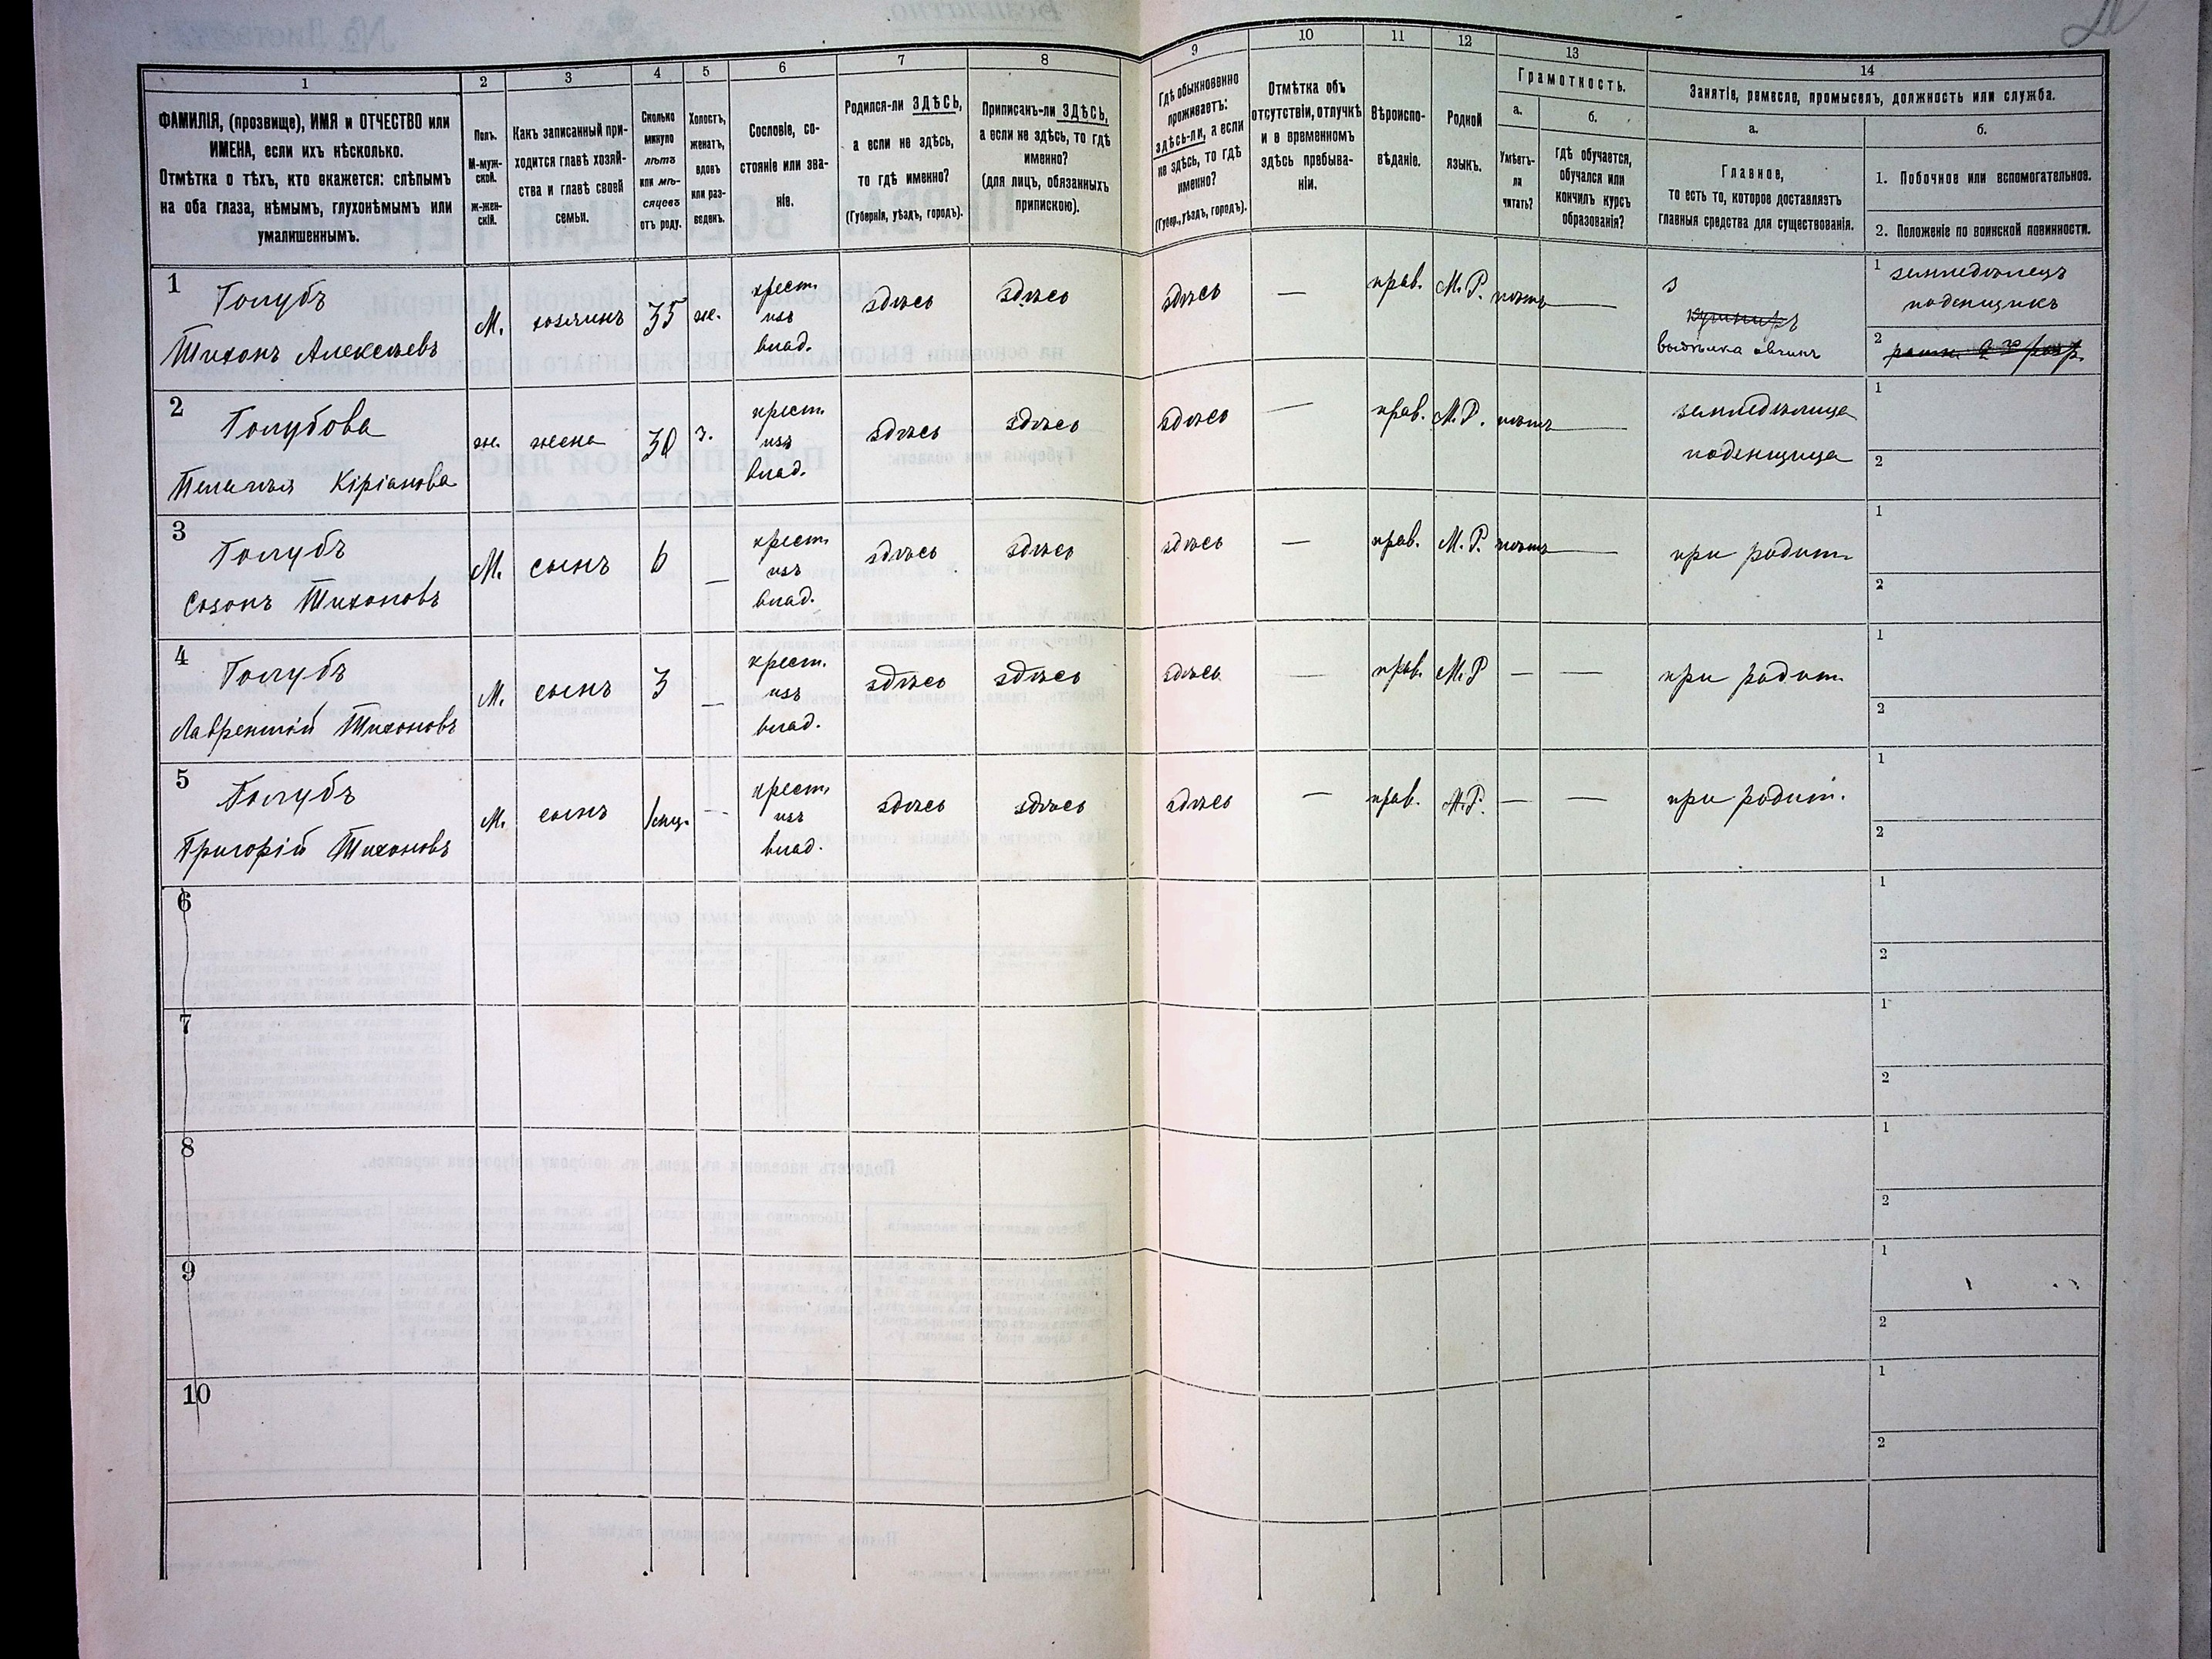 1
2
3
4
5
6
7
8
9
10
11
12
13
14
ФАМИЛІЯ, (прозвище), ИМЯ и ОТЧЕСТВО или
ИМЕНА, если ихъ нѣсколько.
Отмѣтка о тѣхъ, кто окажется: слѣпымъ
на оба глаза, нѣмымъ, глухонѣмымъ или
умалишеннымъ.
Полъ.
М-муж-
ской.
Ж-жен-
скій.
Какъ записанный при-
ходится главѣ хозяй-
ства и главѣ своей
семьи.
Сколько
минуло
лѣтъ
или мѣ-
сяцевъ
отъ роду.
Холостъ,
женатъ,
вдовъ
или раз-
веденъ.
Сословіе, со-
стояніе или зва-
ніе.
Родился-ли ЗДѢСЬ,
а если не здѣсь,
то гдѣ именно?
(Губернія, уѣздъ, городъ).
Приписанъ-ли ЗДѢСЬ,
а если не здѣсь, то гдѣ
именно?
(для лицъ, обязанныхъ
припискою).
Гдѣ обыкновенно
проживаетъ:
здѣсь-ли, а если
не здѣсь, то гдѣ
именно?
(Губер., уѣздъ, городъ).
Отмѣтка объ
отсутствіи, отлучкѣ
и о временномъ
здѣсь пребыва-
ніи.
Вѣроиспо-
вѣданіе.
Родной
языкъ.
Грамотность.
а.
Умѣетъ-
ли
читать?
б.
гдѣ обучается,
обучался или
кончилъ курсъ
образованія?
Занятіе, ремесло, промыселъ, должность или служба.
а.
Главное,
то есть то, которое доставляетъ
главныя средства для существованія.
б.
1. Побочное или вспомогательное.
2. Положеніе по воинской повинности.
1
Голубъ
Тихонъ Алексѣевъ
М.
хозяинъ
35
ж.
крест.
изъ
влад.
здѣсь
здѣсь
здѣсь
—
прав.
М.Р.
нѣтъ
—
выдѣлка овчинъ
1
земледѣлецъ
поденщикъ
2
2
Голубова
Пелагѣя Кіріанова
ж.
жена
30
з.
крест.
изъ
влад.
здѣсь
здѣсь
здѣсь
—
прав.
М.Р.
нѣтъ
—
земледѣлица
поденщица
1
2
3
Голубъ
Созонъ Тихоновъ
М.
сынъ
6
—
крест.
изъ
влад.
здѣсь
здѣсь
здѣсь
—
прав.
М.Р.
нѣтъ
—
при родит.
1
2
4
Голубъ
Лаврентій Тихоновъ
М.
сынъ
3
—
крест.
изъ
влад.
здѣсь
здѣсь
здѣсь
—
прав.
М.Р
—
—
при родит.
1
2
5
Голубъ
Григорій Тихоновъ
М.
сынъ
—
крест.
изъ
влад.
здѣсь
здѣсь
здѣсь
—
прав.
М.Р.
—
—
при родит.
1
2
6
1
2
7
1
2
8
1
2
9
1
2
10
1
2